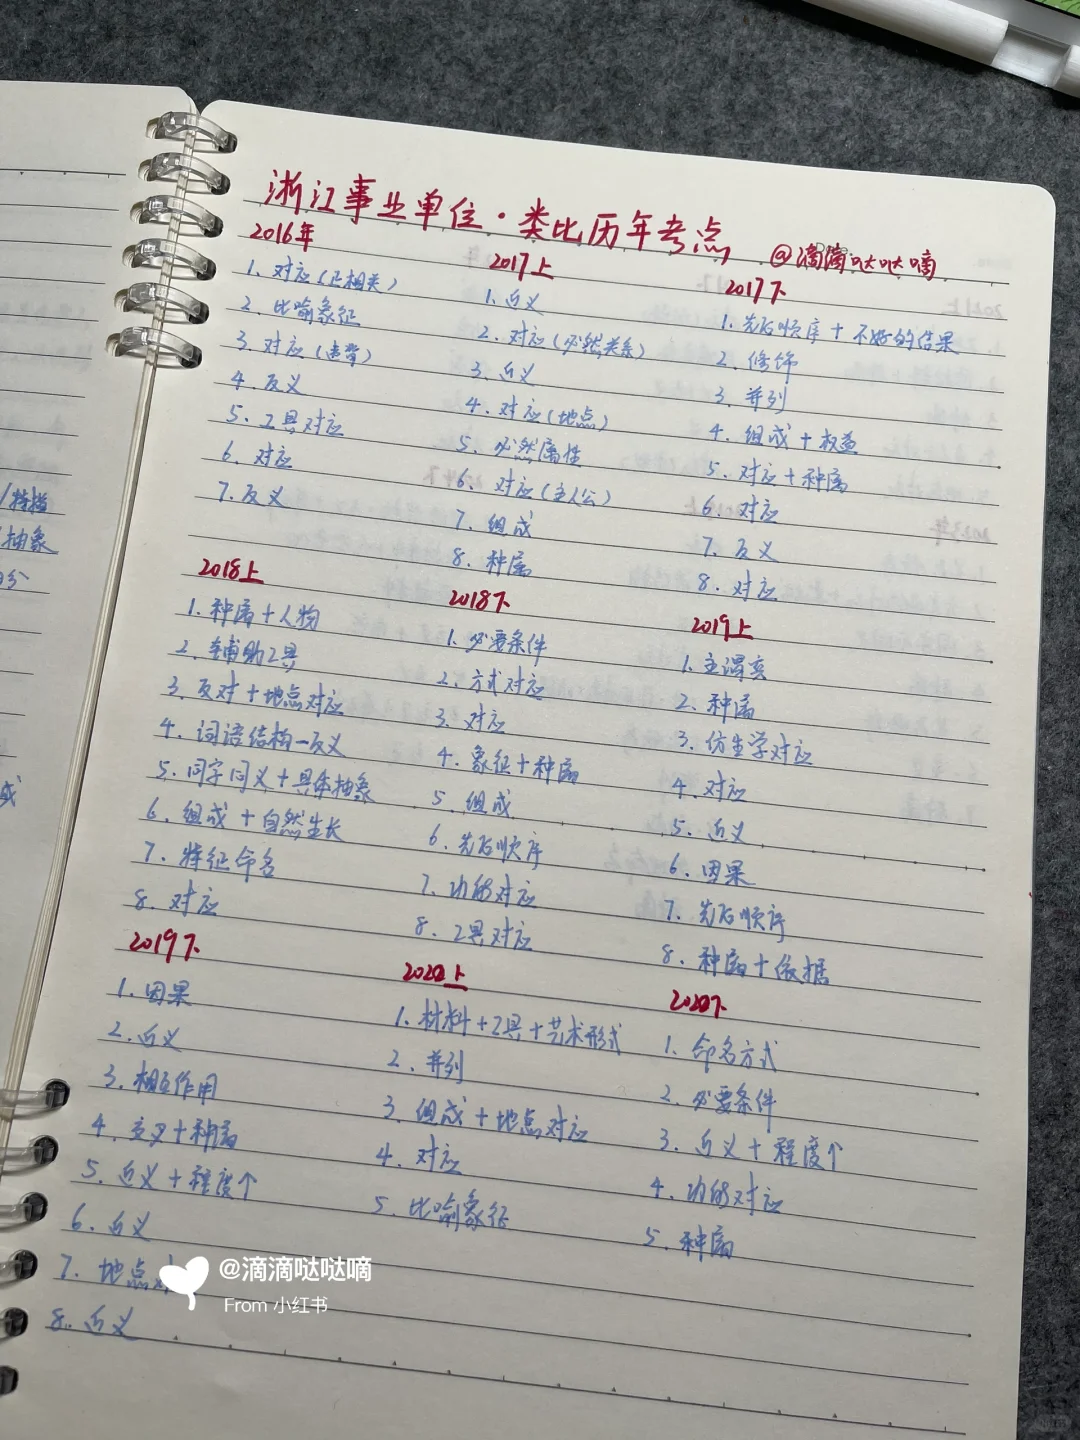 浙江事业单位·类比历年考点
@滴滴哒哒嘀
2016年
1. 对应(正相关)
2. 比喻象征
3. 对应(违背)
4. 反义
5. 工具对应
6. 对应
7. 反义
2017上
1. 近义
2. 对应(必然关系)
3. 近义
4. 对应(地点)
5. 必然属性
6. 对应(主人公)
7. 组成
8. 种属
2017下
1. 先后顺序+不好的结果
2. 修饰
3. 并列
4. 组成+权益
5. 对应+种属
6. 对应
7. 反义
8. 对应
2018上
1. 种属+人物
2. 辅助工具
3. 反对+地点对应
4. 词语结构-反义
5. 同字同义+具体抽象
6. 组成+自然生长
7. 特征命名
8. 对应
2018下
1. 必要条件
2. 方式对应
3. 对应
4. 象征+种属
5. 组成
6. 先后顺序
7. 功能对应
8. 工具对应
2019上
1. 主谓宾
2. 种属
3. 仿生学对应
4. 对应
5. 近义
6. 因果
7. 先后顺序
8. 种属+依据
2019下
1. 因果
2. 近义
3. 相互作用
4. 交叉+种属
5. 近义+程度个
6. 近义
7. 地点
8. 近义
2020上
1. 材料+工具+艺术形式
2. 并列
3. 组成+地点对应
4. 对应
5. 比喻象征
2020下
1. 命名方式
2. 必要条件
3. 近义+程度个
4. 功能对应
5. 种属
/特描
抽象
成
@滴滴哒哒嘀
From 小红书